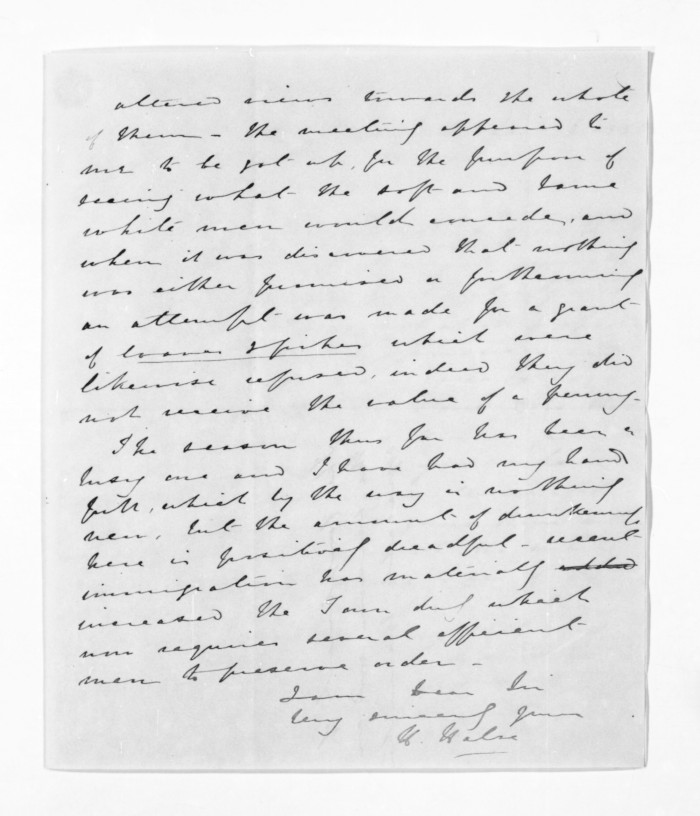 altered views towards the whole
of them - the meeting appeared to
me to be got up, for the purpose of
seeing what the soft and tame
white men would concede, and
when it was discovered that nothing
was either promised or forthcoming
an attempt was made for a grant
of & spikes which were
likewise refused, indeed they did
not receive the value of a penny -
The season thus far has been a
busy one and I have had my hands
full, which by the way is nothing
new, but the amount of drunkenness
here is positively dreadful - recent
immigration has materially added
increased the Town duty which
now requires several efficient
men to preserve order -
I am Dear Sir
Very sincerely yours
H. Halse